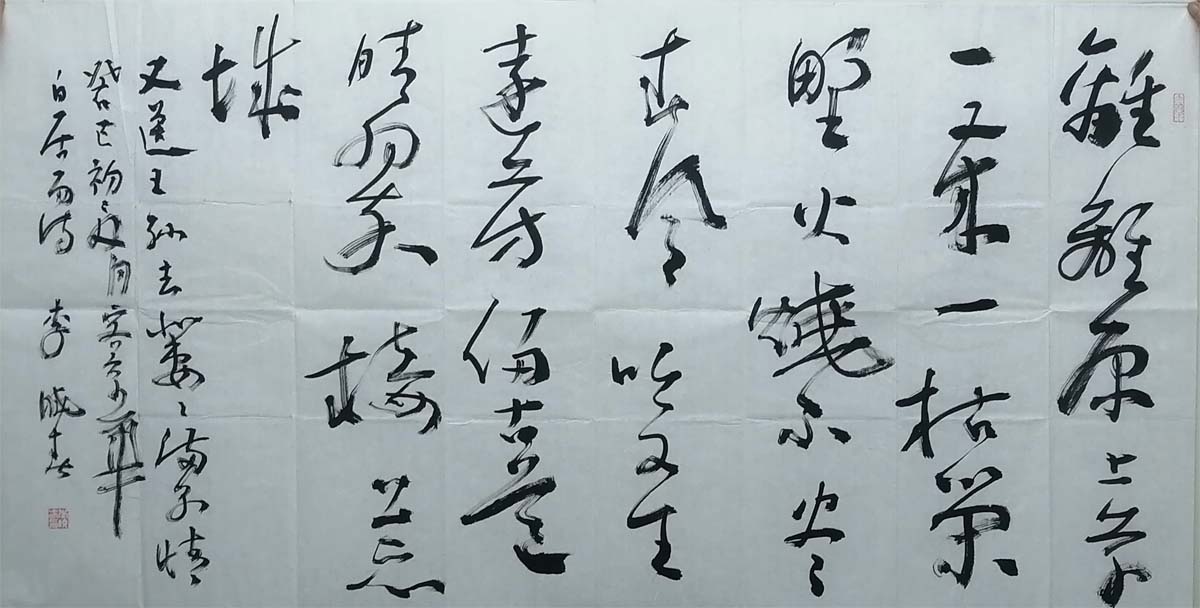 離離原上草
一歲一枯榮
野火燒不盡
春風吹又生
遠芳侵古道
晴翠接荒
城
又送王孫去萋々滿別情
癸巳初夏
白居易詩 李